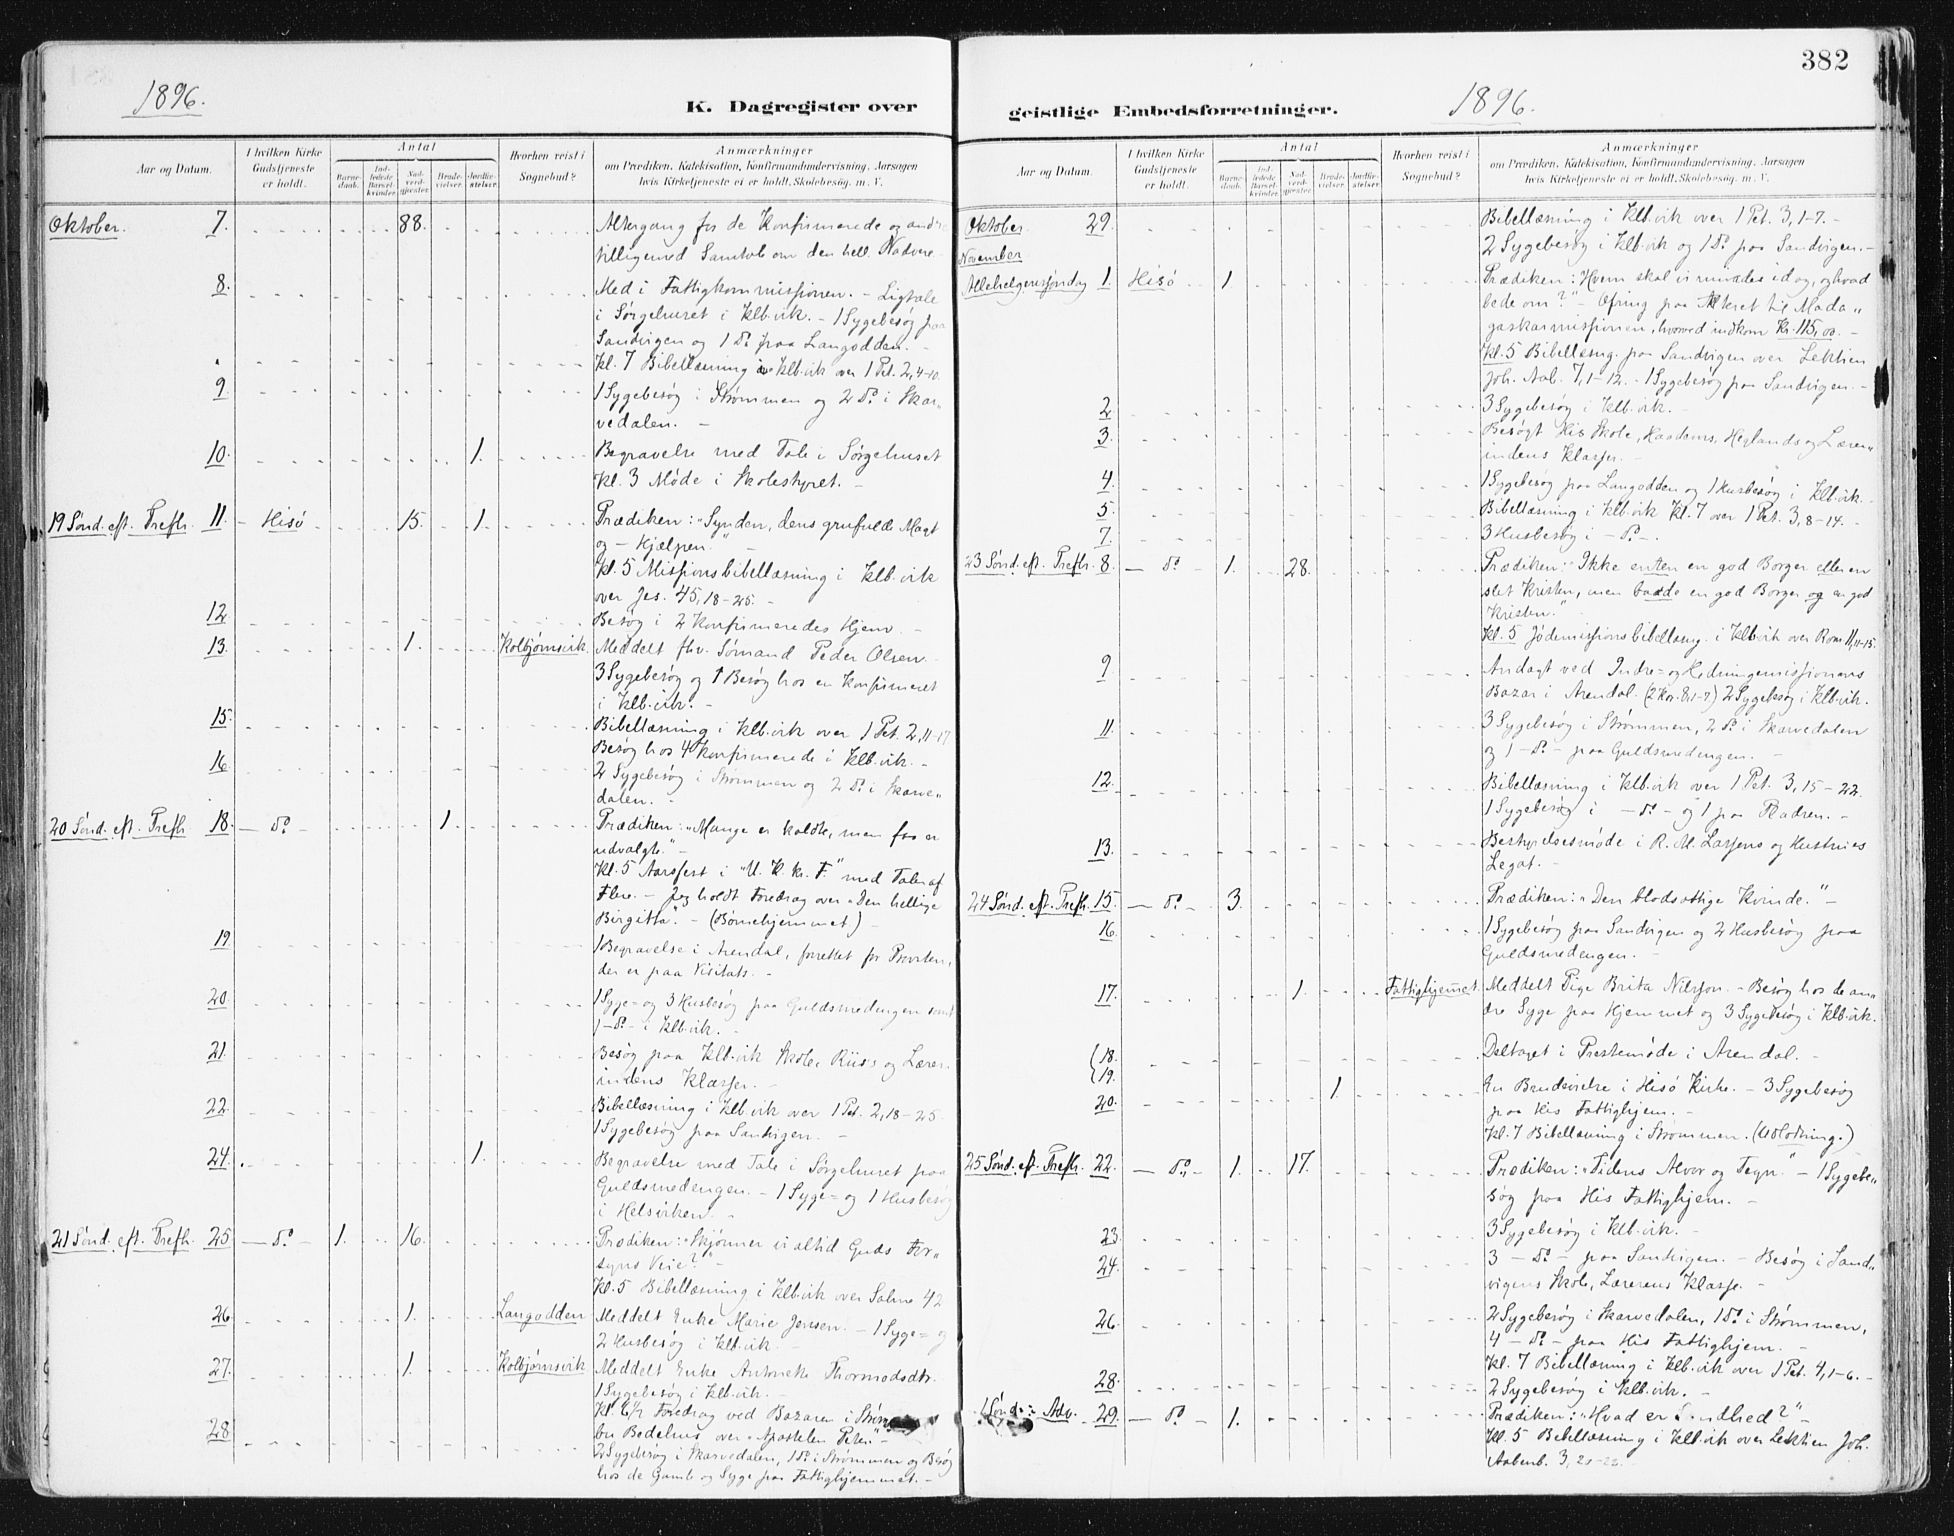 382
1896.
K. Dagregister over
geistlige Embedsforretninger.
1896.
Aar og Datum.
I hvilken Kirke Gudstjeneste er holdt.
Antal
Barnedaab.
Indledede Barselkvinder.
Nadverdgjester.
Brudevielser.
Jordfæstelser.
Hvorhen reist i Sognebud?
Anmærkninger
om Prædiken, Katekisation, Konfirmandundervisning, Aarsagen
hvis Kirketjeneste ei er holdt, Skolebesøg m. V.
Oktober. 7. 88. Altergang for de Konfirmerede og andre
tilligemed Samtale om den hell. Nadvere
8. Med i Fattigkommissionen. - Ligtale
i Sørgehuset i Klb.vik. - 1 Sygebesøg paa
Sandvigen og 1 Do paa Langodden. -
Kl. 7 Bibellæsning i Klb.vik over 1 Pet. 2, 4-10.
9. 1 Sygebesøg i Strømmen og 2 Do i Skar„
vedalen. -
10. 1. Begravelse med Tale i Sørgehuset
Kl. 3 Møde i Skolestyret. -
19 Sønd. eft. Trefh. 11. Hisö 15. 1. Prædiken: "Synden, dens grufulde Magt
og - Hjælpen." -
Kl. 5 Missionsbibellæsning i Klb.vik
over Jes. 45, 18-25. -
12. Besøg i 2 Konfirmeredes Hjem. -
13. 1. Kolbjørnsvik. Meddelt fhv. Sømand Peder Olsen
3 Sygebesøg og 1 Besøg hos en Konfirmeret
i Klb.vik. -
15. Bibellæsning i Klb.vik over 1 Pet. 2, 11-17
16 Besøg hos 4 Konfirmerede i Klb.vik. -
2 Sygebesøg i Strømmen og 2 Do i Skarve„
dalen. -
20 Sønd. eft. Trefh 18. - Do 1. Prædiken: "Mange er kaldte, men faa er
udvalgte." -
Kl. 5 Aarsfest i "U. K. kr. F." med Taler af
Flere. - Jeg holdt Foredrag over "Den hellige
Birgitta". - (Børnehjemmet) -
19 1 Begravelse i Arendal, forrettet for Provsten,
der er paa Visitats. -
20. 1 Syge= og 3 Husbesøg paa Guldsmedengen samt
1 - Do - i Klb.vik. -
21. Besøg paa Klb.vik Skole, Riis's og Lærer
indens Klasser. -
22. Bibellæsning i Klb.vik over 1 Pet. 2, 18-25
1 Sygebesøg paa Sandvigen. -
24. 1. Begravelse med Tale i Sørgehuset paa
Guldsmedengen. - 1 Syge= og 1 Husbesøg
i Helsviken. -
21 Sønd. eft. Trefh. 25 - Do - 1. 16. Prædiken: "Skjønner vi altid Guds For„
syns Veie?" -
Kl. 5 Bibellæsning i Klb.vik over Salme 42
26. 1. Langodden Meddelt Enke Marie Jensen. - 1 Syge= og
2 Husbesøg i Klb.vik. -
27. 1. Kolbjørnsvik Meddelt Enke Thormodsdtr.
1 Sygebesøg i Klb.vik. -
Kl. 6½ Foredrag ved Bazaren i
28 Bedehus over "Apostelen Peter" -
2 Sygebesøg i Skarvedalen, 1 Do i Strømmen og Besøg
hos de Gamle og Syge paa Fattighjemmet. -
Aar og Datum.
I hvilken Kirke Gudstjeneste er holdt.
Antal
Barnedaab.
Indledede Barselkvinder.
Nadverdgjester.
Brudevielser.
Jordfæstelser.
Hvorhen reist i Sognebud?
Anmærkninger
om Prædiken, Katekisation, Konfirmandundervisning, Aarsagen
hvis Kirketjeneste ei er holdt, Skolebesøg m. V.
Oktober. 29. Bibellæsning i Klb.vik over 1 Pet. 3, 1-7. -
2 Sygebesøg i Klb.vik og 1 Do paa Sandvigen. -
November
Allehelgenssøndag 1. Hisö 1. Prædiken: "Hvem skal vi mindes idag, og hvad
bede om?" - Ofring paa Alteret til Mada„
gaskarmissionen, hvorved indkom Kr. 115,00. -
Kl. 5 Bibellæsng. paa Sandvigen over Lektien
Joh. Aab. 7, 1-12. - 1 Sygebesøg paa Sandvigen. -
2 3 Sygebesøg i Klb.vik. -
3. Besøgt His Skole, Haadems, Heglands og Lærer„
indens Klasser. -
4. 1 Sygebesøg paa Langodden og 1 Husbesøg i Klb.vik.
5. Bibellæsning i Klb.vik Kl. 7 over 1 Pet. 3, 8-14. -
7. 3 Husbesøg i - Do -.
23 Sønd. eft. Trefh. 8. - Do - 1. 28. Prædiken: "Ikke enten en god Borger eller en
slet Kristen, men baade en god Borger og en god
Kristen." -
Kl. 5 Jødemissionsbibellæsng. i Klb.vik over Rom. 11, 11-15.
9 Andagt ved Indre= og Hedningemissionens
Bazar i Arendal. (2 Kor. 8, 1-7) 2 Sygebesøg i Klb.vik.
11. 3 Sygebesøg i Strømmen, 2 Do i Skarvedalen
og 1 - Do - paa Guldsmedengen. -
12. Bibellæsning i Klb.vik over 1 Pet. 3, 15-22.
1 Sygebesøg i - Do - og 1 paa Fladren. -
13. Bestyrelsesmøde i R. M. Lassens og Hustrues
Legat. -
24 Sønd. eft. Trefh. 15. - Do - 3. Prædiken: "Den blodsottige Kvinde." -
16. 1 Sygebesøg paa Sandvigen og 2 Husbesøg paa
Guldsmedengen. -
17. 1. Fattighjemmet. Meddelt Pige Brita Nilsson. - Besøg hos de an„
dre Syge paa Hjemmet og 3 Sygebesøg i Klb.vik.
18. 19. Deltaget i Prestemøde i Arendal. -
20. 1. En Brudevielse i Hisö Kirke. - 3 Sygebesøg
paa His Fattighjem. -
Kl. 7 Bibellæsning i Strømmen. (Udlodning.)
25 Sønd. eft. Trefh. 22. - Do. - 1. 17. Prædiken: "Tidens Alvor og Tegn." - 1 Sygebe„
søg paa His Fattighjem. -
23. 3 Sygebesøg i Klb.vik. -
24. 3 - Do - paa Sandvigen. - Besøg i Sand„
vigens Skole, Lærerens Klasse. -
26. 2 Sygebesøg i Skarvedalen, 1 Do i Strømmen,
4 - Do - paa His Fattighjem. -
Kl. 7 Bibellæsning i Klb.vik over 1 Pet. 4, 1-6. -
28. 2 Sygebesøg i Klb.vik. -
1 Sønd. i Adv. 29. - Do - 1. Prædiken: "Hvad er Sandhed?" -
Kl. 5 Bibellæsning i Klb.vik over Lektien Joh.
Aabenb. 3, 20-22.